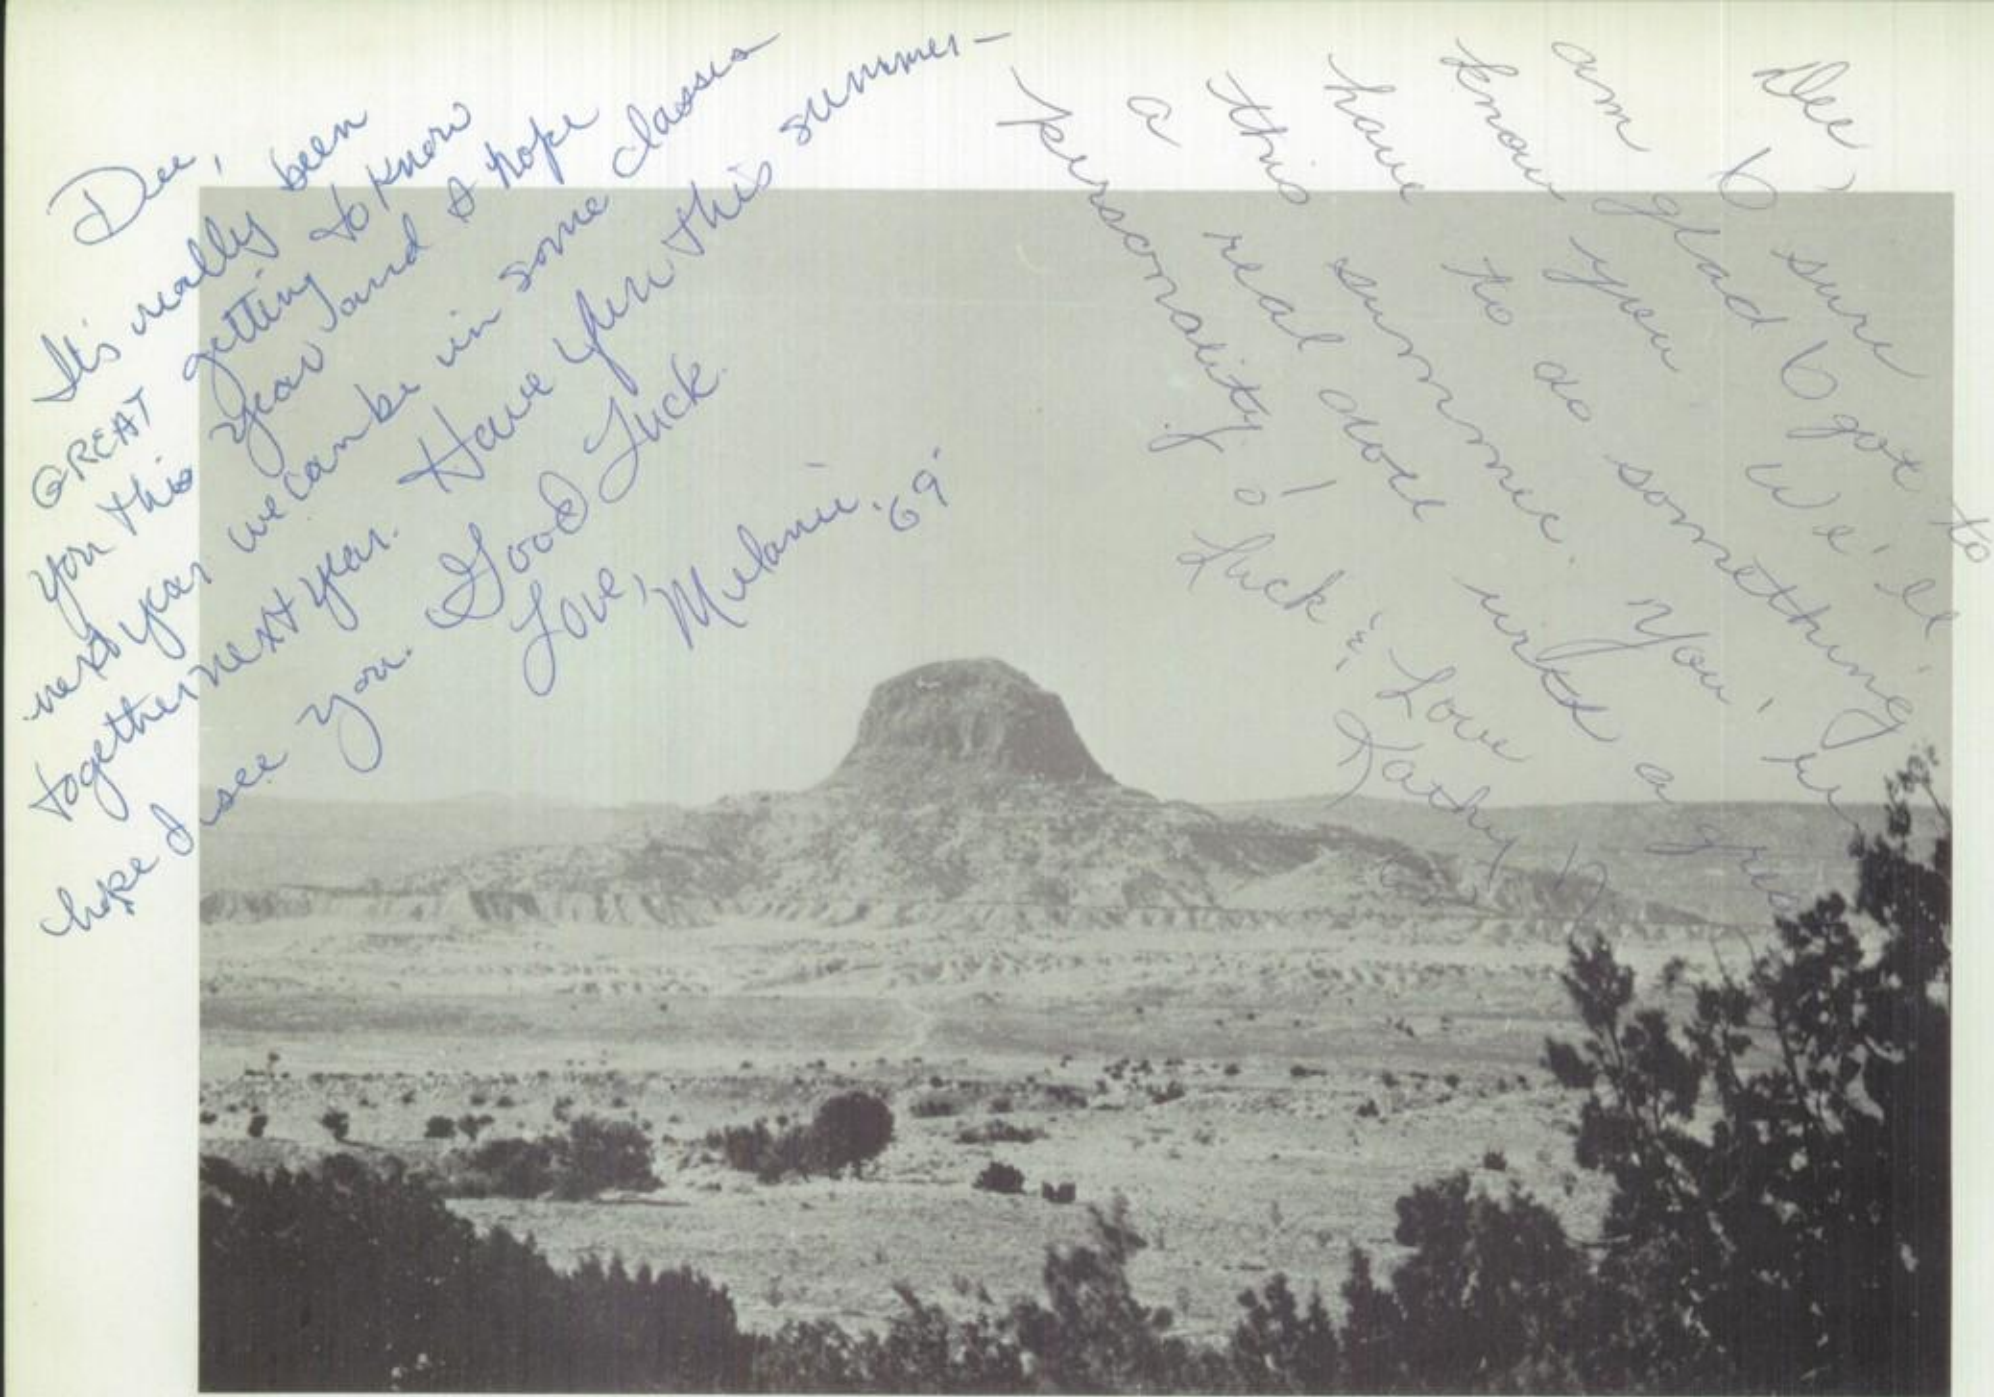 Dee,
It's really been
GREAT getting to know
you this year and I hope
next year we can be in some classes
together next year. Have fun this summer-
hope I see you. Good Luck.
Love,
Melanie '69'
Dee,
I sure
am glad I got to
know you. We'll
have to do something
this summer. You're
a real doll with a great
personality!
Luck & Love
Kathy N